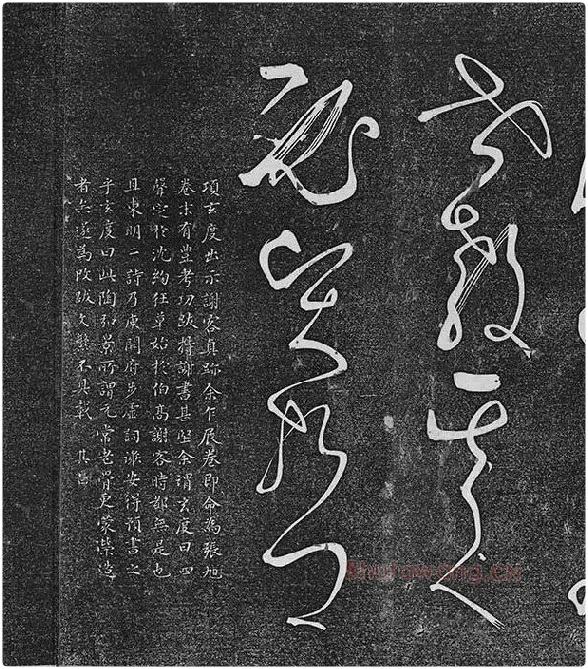 世教其人
必賢哲
項玄度出示謝客真跡余乍展卷即命為張旭
卷末有豐考功跋持謝書甚堅余謂玄度曰四
聲定於沈約狂草始於伯高謝客時都無是也
且東明二詩乃庾開府步虛詞謝安得預書之
乎玄度曰此陶弘景所謂元常老骨更蒙榮造
者矣遂為改跋文繁不具載 其昌
shufawang.cn